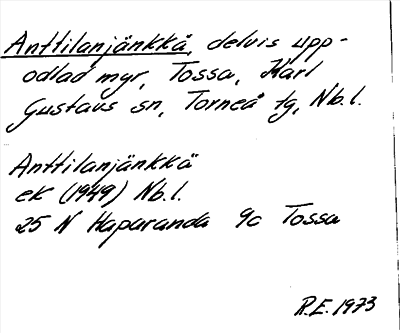 Anttilanjänkkä, delvis upp-
odlad myr, Tossa, Karl
Gustavs sn, Torneå tg, Nb.l.
Anttilanjänkkä
ek (1949) Nb.l.
25 N Haparanda 9c Tossa
R.E. 1973